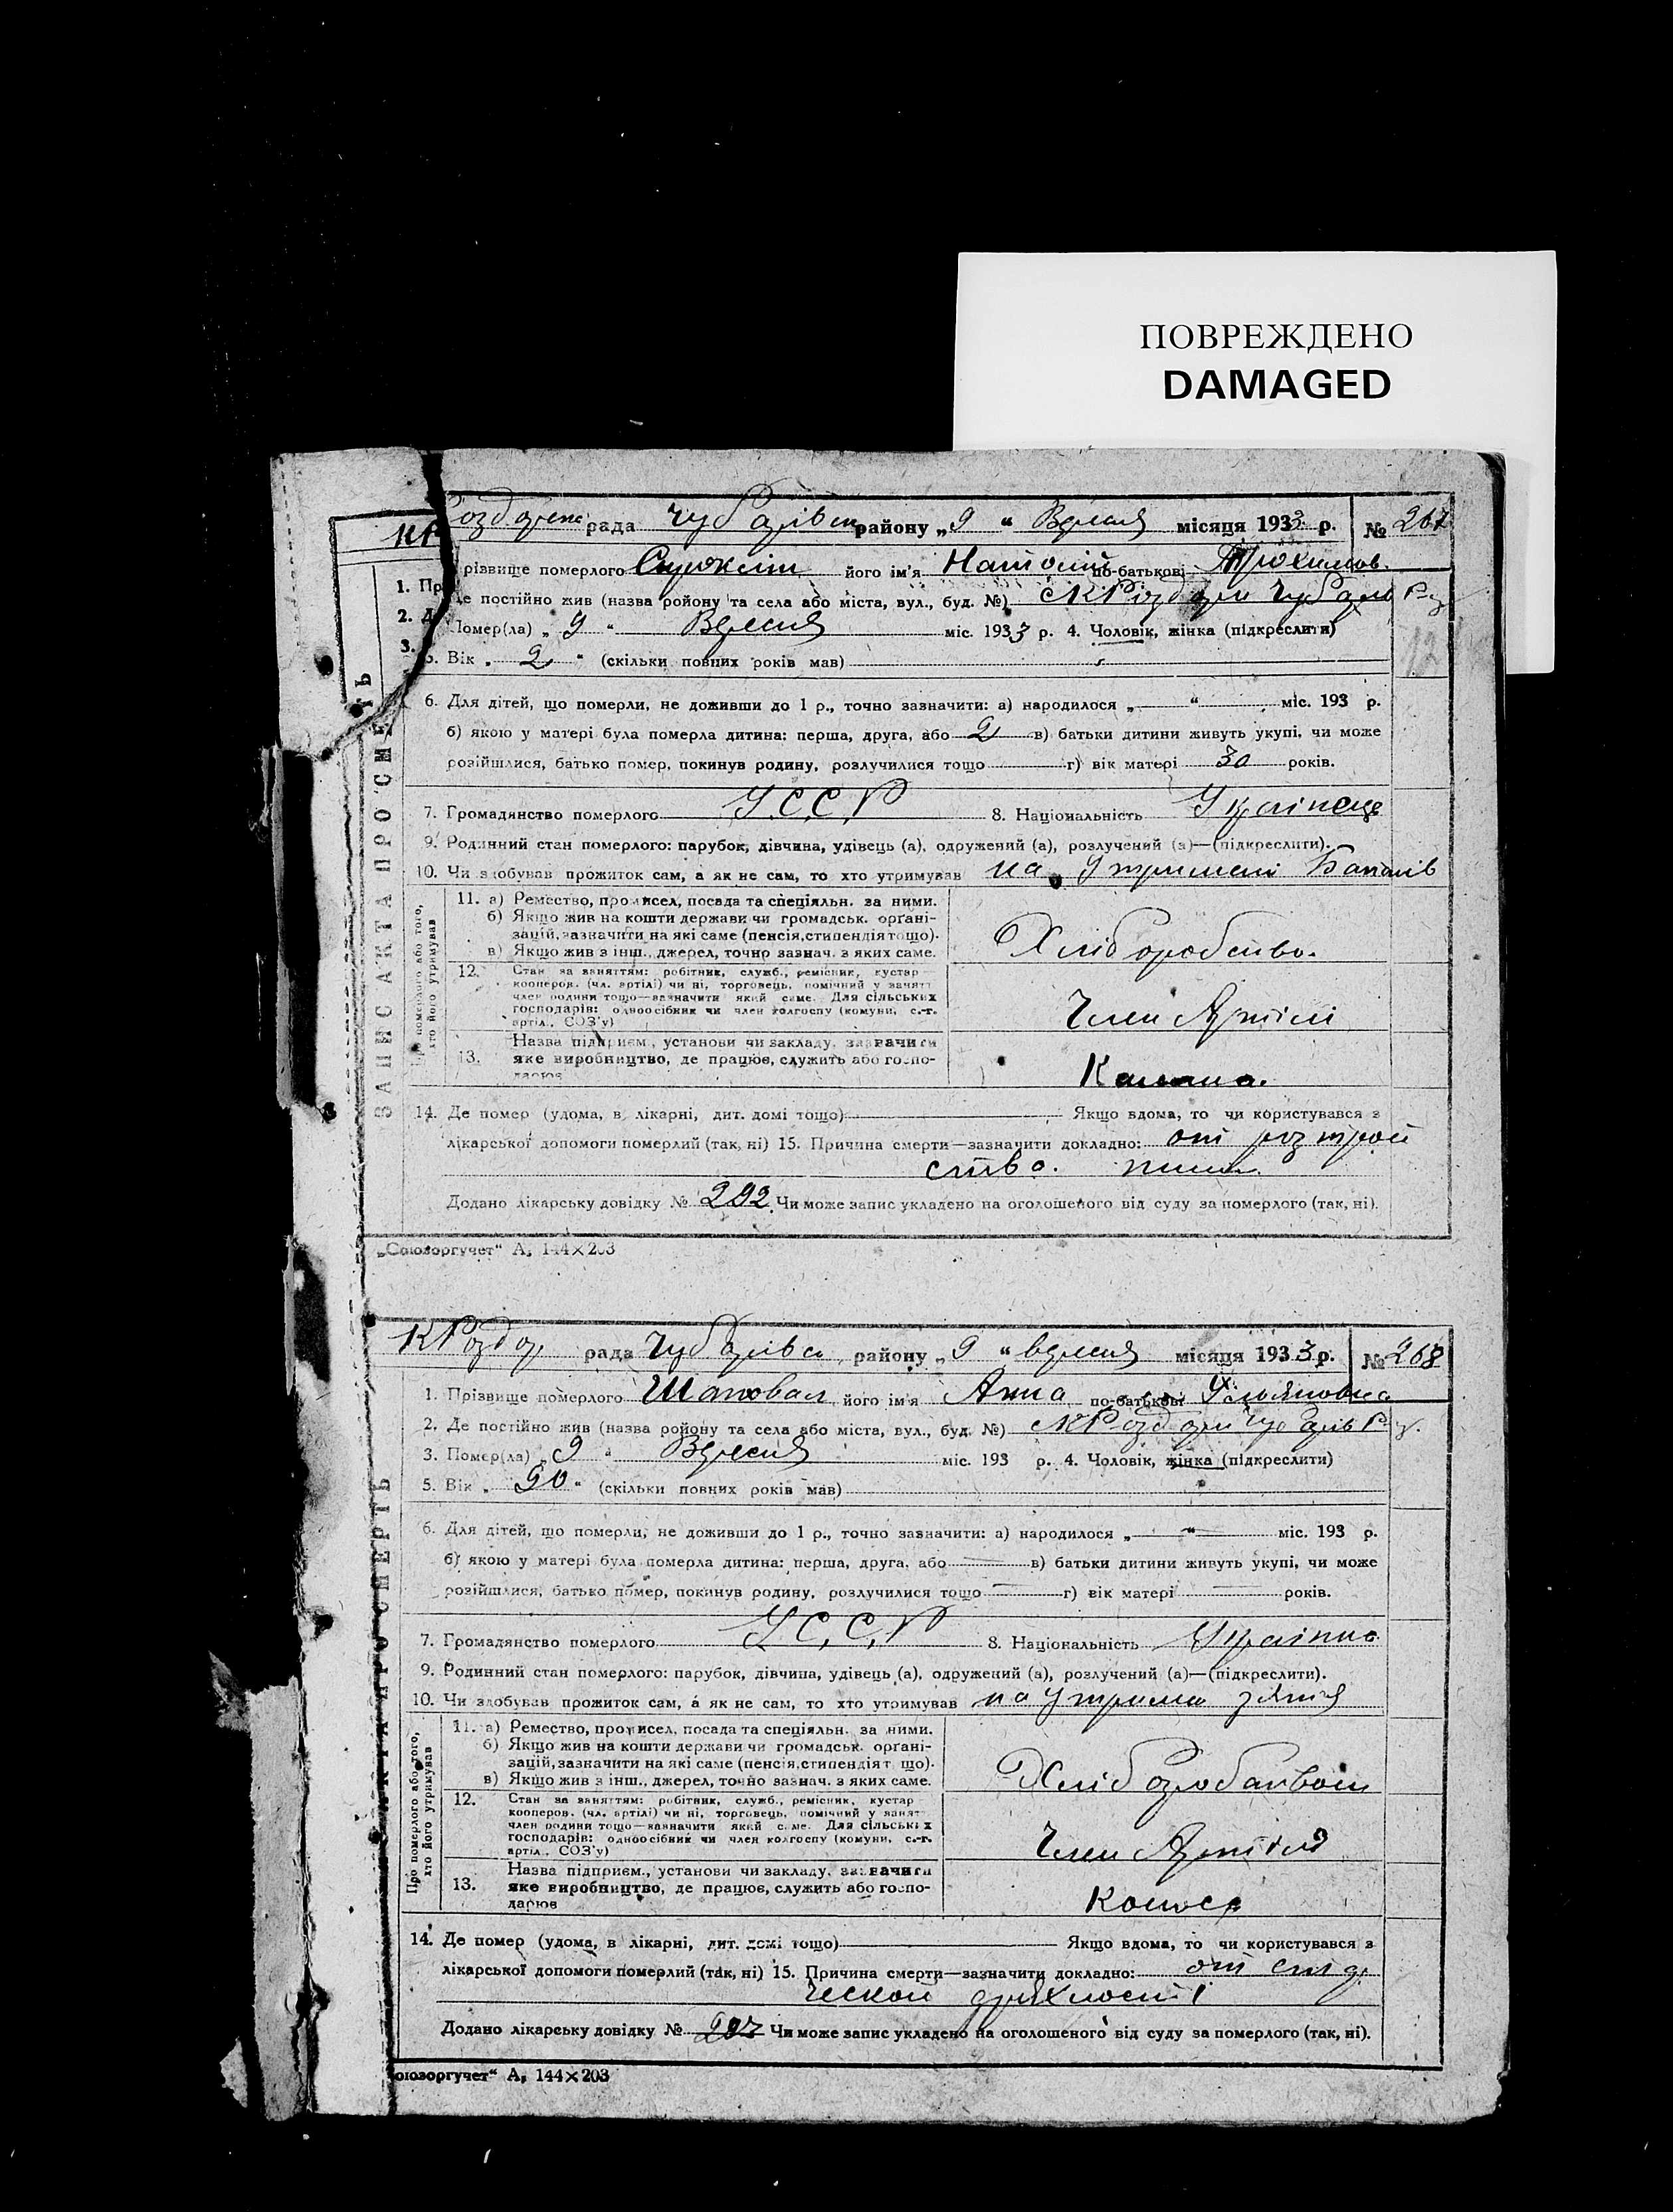 ПОВРЕЖДЕНО
DAMAGED
рада Чубарівськ району „ 9 “ Вересня місяця 1933 р. № 267
різвище померлого його ім'я по-батькові Трохимов.
1. Пр
де постійно жив (назва ройону та села або міста, вул., буд. №)
2. Д
Помер(ла) „ 9 “ Вересня міс. 1933 р. 4. Чоловік, жінка (підкреслити)
3.
5. Вік „ 2 “ (скільки повних років мав)
6. Для дітей, що померли, не доживши до 1 р., точно зазначити: а) народилося „ “ міс. 193 р.
б) якою у матері була померла дитина: перша, друга, або 2 в) батьки дитини живуть укупі, чи може
розійшлися, батько помер, покинув родину, розлучилися тощо г) вік матері 30 років.
7. Громадянство померлого У.С.С.Р 8. Національність Українець
9. Родинний стан померлого: парубок, дівчина, удівець (а), одружений (а), розлучений (а)—(підкреслити).
10. Чи здобував прожиток сам, а як не сам, то хто утримував на Утримані Батьків
Про померлого або того,
хто його утримував
11. а) Ремество, промисел, посада та спеціяльн. за ними.
б) Якщо жив на кошти держави чи громадськ. орґані-
зацій, зазначити на які саме (пенсія, стипендія тощо).
в) Якщо жив з інш., джерел, точно зазнач. з яких саме.
Хліборобство.
12. Стан за заняттям: робітник, служб., ремісник, кустар
кооперов. (чл. артілі) чи ні, торговець, помічний у занятт
член родини тощо—зазначити який саме. Для сільських
господарів: одноосібник чи член колгоспу (комуни, с.-г.
артіл., СОЗ'у)
Член Артілі
13. Назва підприєм., установи чи закладу, зазначити
яке виробництво, де працює, служить або госпо-
дарює
14. Де помер (удома, в лікарні, дит. домі тощо) Якщо вдома, то чи користувався з
лікарської допомоги померлий (так, ні) 15. Причина смерти—зазначити докладно: от розтрой
ство.
Додано лікарську довідку № 292 Чи може запис укладено на оголошеного від суду за померлого (так, ні).
„Союзоргучет“ А5 144×203
ЗАПИС АКТА ПРО СМЕ
ТЬ
рада Чубарівськ району „ 9 “ вересня місяця 1933 р. № 268
1. Прізвище померлого Шаповал його ім'я Анна по-батькові
2. Де постійно жив (назва ройону та села або міста, вул., буд. №)
3. Помер(ла) „ 9 “ Вересня міс. 193 р. 4. Чоловік, жінка (підкреслити)
5. Вік „ 90 “ (скільки повних років мав)
6. Для дітей, що померли, не доживши до 1 р., точно зазначити: а) народилося „ “ міс. 193 р.
б) якою у матері була померла дитина: перша, друга, або в) батьки дитини живуть укупі, чи може
розійшлися, батько помер, покинув родину, розлучилися тощо г) вік матері років.
7. Громадянство померлого У.С.С.Р 8. Національність
9. Родинний стан померлого: парубок, дівчина, удівець (а), одружений (а), розлучений (а)—(підкреслити).
10. Чи здобував прожиток сам, а як не сам, то хто утримував на Утриман зятя
Про померлого або того,
хто його утримував
11. а) Ремество, промисел, посада та спеціяльн. за ними.
б) Якщо жив на кошти держави чи громадськ. орґані-
зацій, зазначити на які саме (пенсія, стипендія т що).
в) Якщо жив з інш., джерел, точно зазнач. з яких саме.
12. Стан за заняттям: робітник, служб., ремісник, кустар
кооперов. (чл. артілі) чи ні, торговець, помічний у занят
член родини тощо—зазначити який саме. Для сільських
господарів: одноосібник чи член колгоспу (комуни, с.-г.
артіл., СОЗ'у)
Член Артілі
13. Назва підприєм., установи чи закладу, зазначити
яке виробництво, де працює, служить або госпо-
дарює
14. Де помер (удома, в лікарні, дит. домі тощо) Якщо вдома, то чи користувався з
лікарської допомоги померлий (так, ні) 15. Причина смерти—зазначити докладно: от старч
ческой дряхлості
Додано лікарську довідку № Чи може запис укладено на оголошеного від суду за померлого (так, ні).
оюзоргучет“ А5 144×203
АКТА ПРО СМЕРТЬ